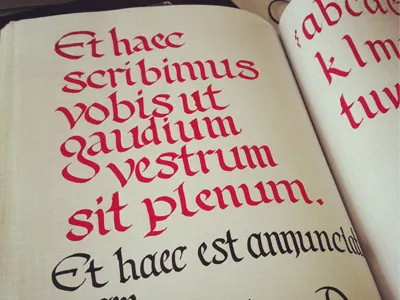 Et haec
scribimus
vobis ut
gaudium
vestrum
sit plenum.
Et haec est annunciat
abcde
klm
tuv